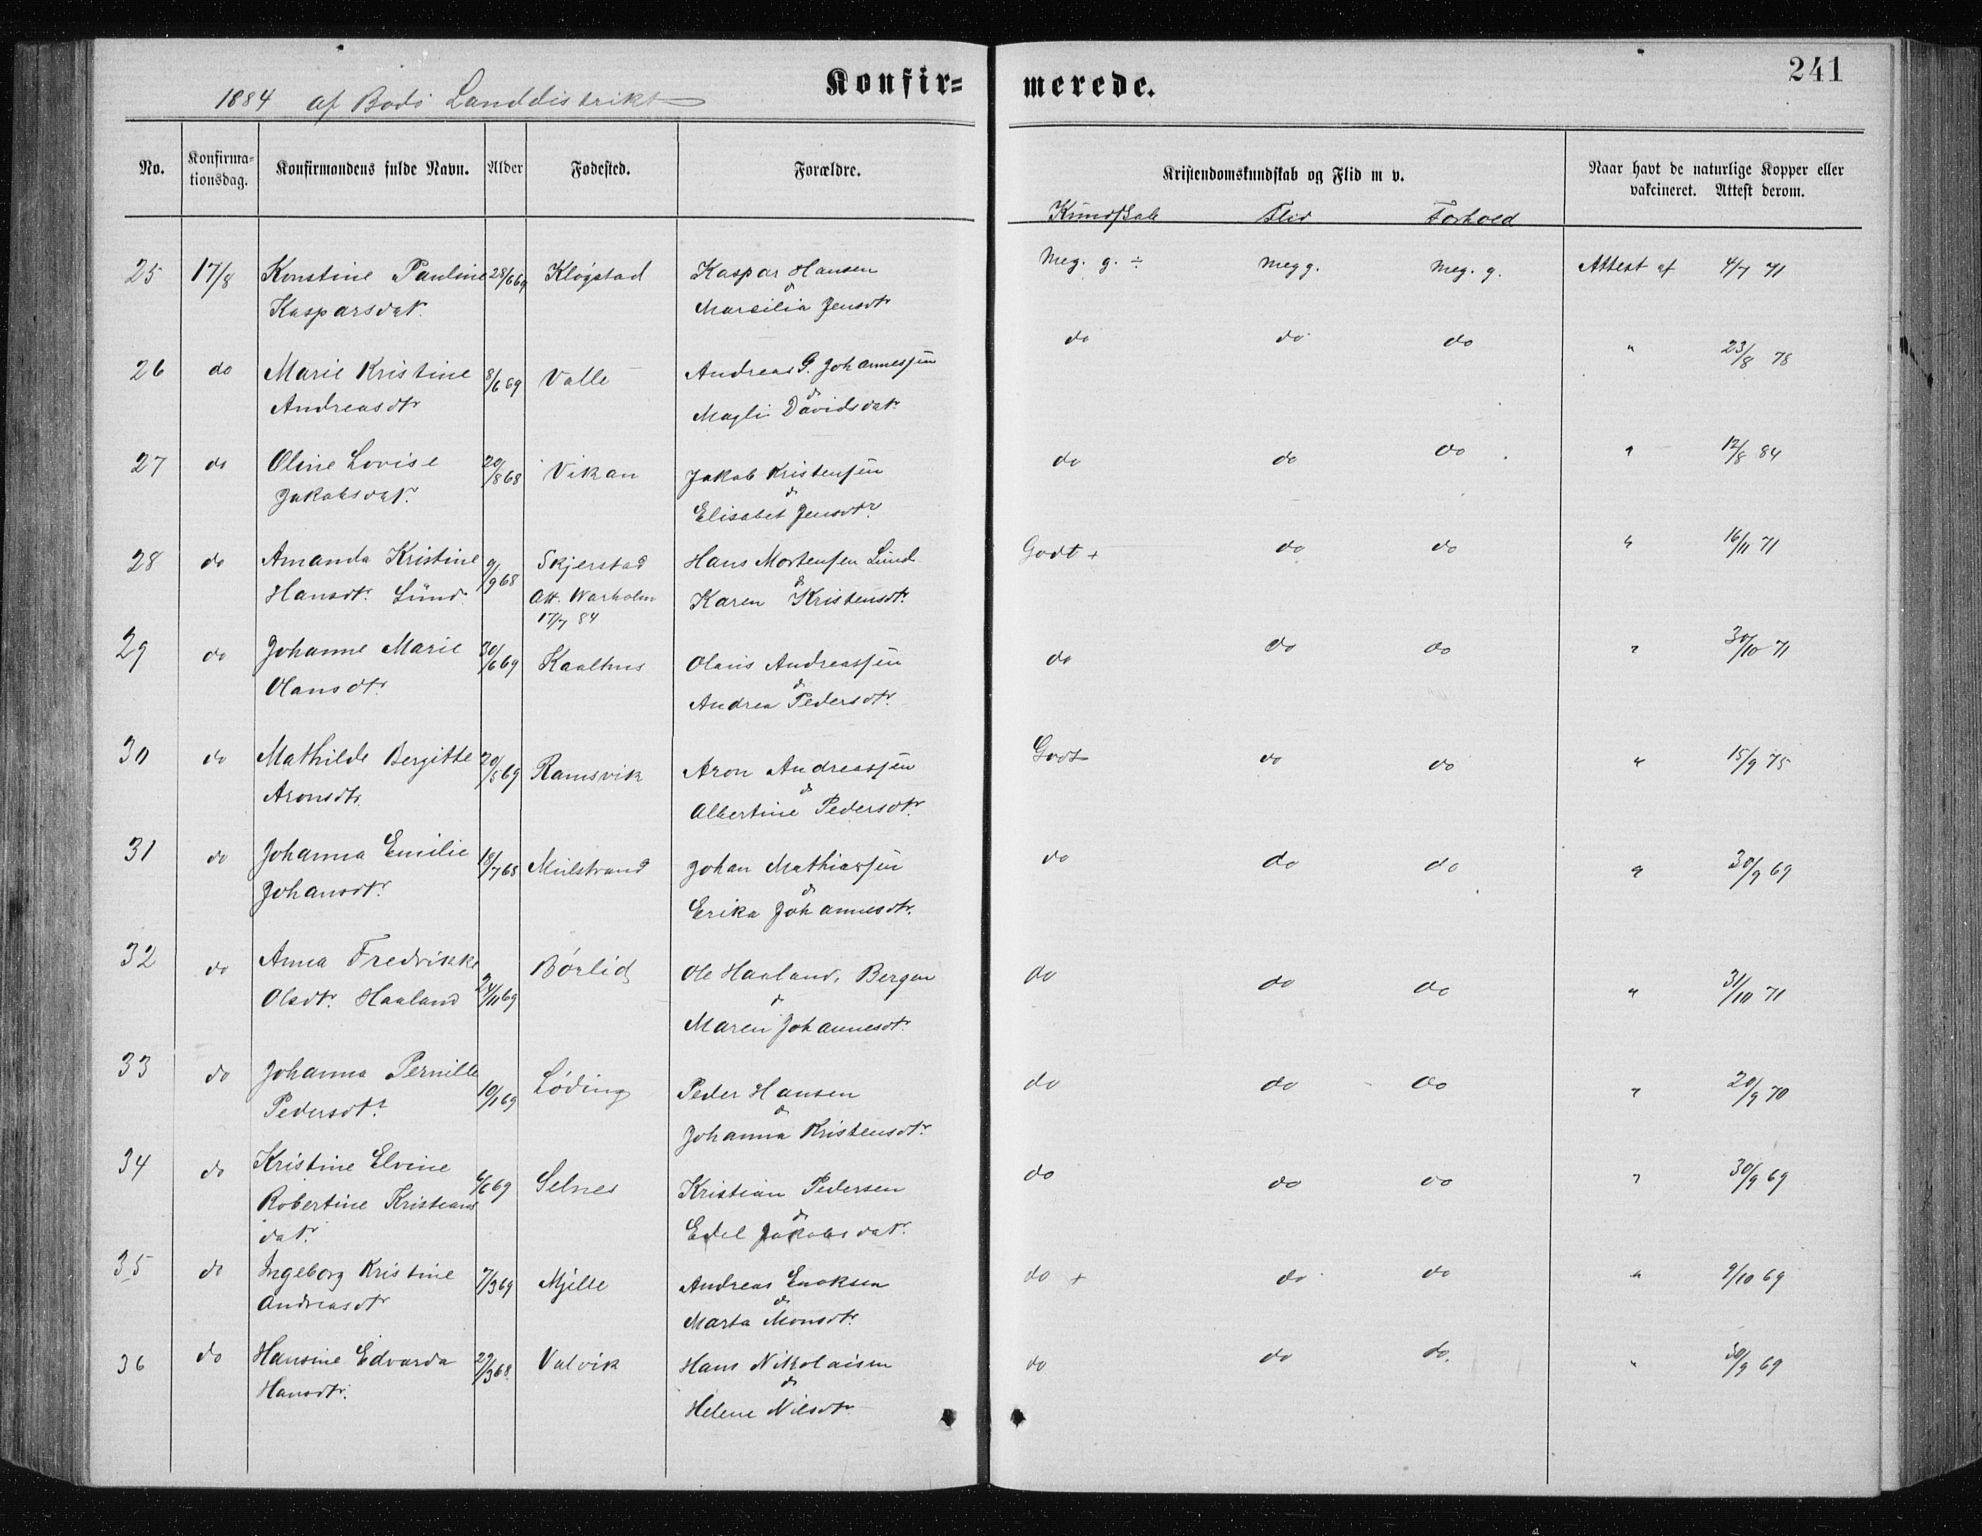 241
Konfir-merede.
1884 af Bodö Landdistrikt
No.
Konfirma-tionsdag.
Konfirmandens fulde Navn.
Alder
Fødested.
Forældre.
Kristendomskundskab og Flid m v.
Naar havt de naturlige Kopper eller vakcineret. Attest derom.
Kundskab Flid Forhold
25 17/8 Konstine Pauline 28/6 69 Kløgstad Kaspar Hansen Meg. g. ÷ meg g. meg. g. Attest af 4/7 71
Kaspersdat. & Marsilia Jensdtr
26 do Marie Kristine 8/6 69 Valle Andreas G. Johannessen do do do " 23/8 78
Andreasdtr & Magli Davidsdatr
27 do Oline Lovise 20/8 68 Vikan Jakob Kristensen do do do " 12/8 84
Jakobsdatr. & Elisabet Jensdtr
28 do Amanda Kristine 9/9 68 Skjerstad Hans Mortensen Lund Godt + do do " 16/11 71
Hansdtr. Lund. Att. Warholm & Karen Kristensdtr.
17/7 84
29 do Johanne Marie 30/6 69 Kaalhus Olaus Andreassen do do do " 30/10 71
Olausdtr. & Andrea Pedersdtr.
30 do Mathilde Bergitte 20/5 69 Ramsvik Aron Andreassen Godt do do " 15/9 75
Aronsdtr. & Albertine Pedersdtr.
31 do Johanna Emilie 18/7 68 Mulstrand Johan Mathiassen do do do " 30/9 69
Johansdtr. & Erika Johannesdtr.
32 do Anna Fredrikke 24/11 69 Børlid Ole Haaland, Bergen do do do " 31/10 71
Olsdtr. Haaland & Maren Johannesdtr.
33 do Johanna Pernille 10/1 69 Løding Peder Hansen do do do " 20/9 70
Pedersdtr. & Johanna Kristensdtr.
34 do Kristine Elvine 6/6 69 Selnes Kristian Pedersen do do do " 30/9 69
Robertine Kristians & Edel Jakobsdatr.
datr.
35 do Ingeborg Kristine 7/3 69 Mjelle Andreas Enoksen do + do do " 9/10 69
Andreasdtr & Marta Monsdtr.
36 do Hansine Edvarda 29/3 68 Valvik Hans Nikolaisen do do do. " 30/9 69
Hansdtr. & Helene Nilsdtr